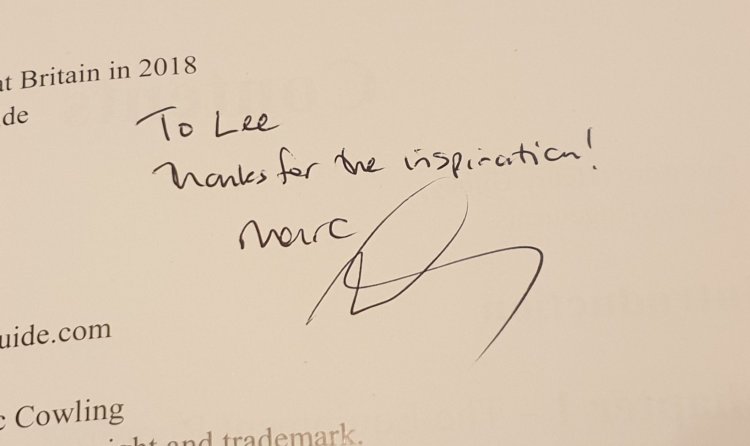 at Britain in 2018
de
To Lee
Thanks for the inspiration!
Marc
uide.com
c Cowling
ght and trademark.